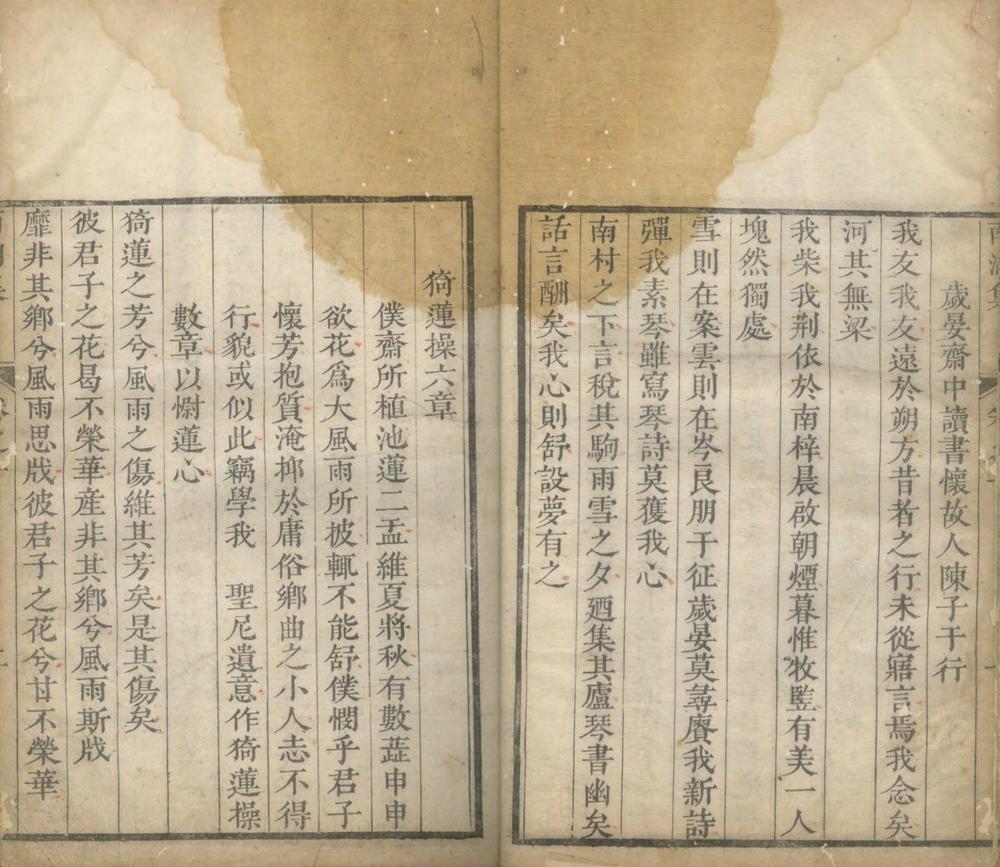 歲晏齋中讀書懷故人陳子于行
我友我友遠於朔方昔者之行未從寤言焉我念矣
河其無梁
我柴我荆依於南梓晨啟朝煙暮惟牧豎有美一人
塊然獨處
雪則在案雲則在岑良朋于征歲晏莫尋賡我新詩
彈我素琴雖寫琴詩莫獲我心
南村之下言稅其駒雨雪之夕廼集其廬琴書幽矣
話言酬矣我心則舒設夢有之
猗蓮操六章
僕齋所植池蓮二盂維夏將秋有數蕋申申
欲花爲大風雨所彼輒不能舒僕憫乎君子
懷芳抱質淹抑於庸俗鄉曲之小人志不得
行貌或似此竊學我 聖尼遺意作猗蓮操
數章以慰蓮心
猗蓮之芳兮風雨之傷維其芳矣是其傷矣
彼君子之花曷不榮華産非其鄉兮風雨斯戕
靡非其鄉兮風雨思戕彼君子之花兮甘不榮華